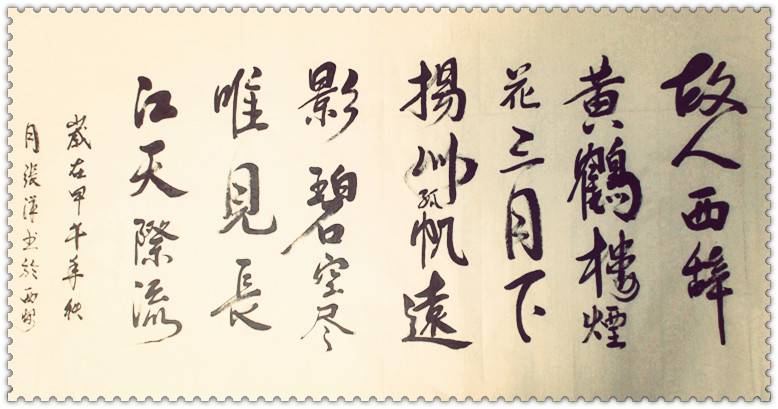 故人西辞
黄鶴樓煙
花三月下
揚州孤帆遠
影碧空尽
唯見長
江天際流
歲在甲午年秋
月張洋书於西